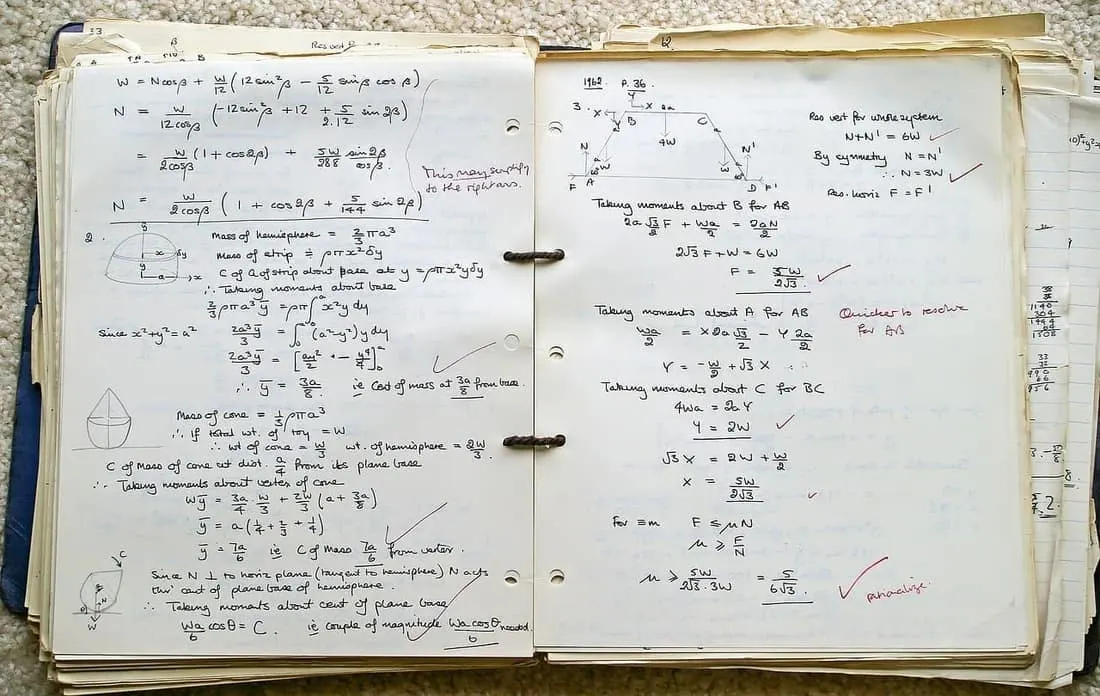 33
Res vert
W = Ncosβ + W/12 (12sin²β − 5/12 sinβ cosβ)
N = W/12cosβ (−12sin²β + 12 + 5/2.12 sin2β)
= W/2cosβ (1 + cos2β) + 5W/288 sin2β/cosβ.
This may simplify
to the right ans.
N = W/2cosβ (1 + cos2β + 5/144 sin2β)
2.
Mass of hemisphere = 2/3 πa³
y
x δy
y
a x
Mass of strip ≑ ρπx²δy
C of G of strip about base at y = ρπx²yδy
∴ Taking moments about base
2/3 ρπa³ȳ = ρπ∫₀ᵃ x²y dy
Since x²+y²=a² 2a³ȳ/3 = ∫₀ᵃ (a²−y²)y dy
2a³ȳ/3 = [ay²/2 − y⁴/4]₀ᵃ
∴ ȳ = 3a/8 ie Cent of mass at 3a/8 from base.
Mass of cone = 1/3 ρπa³
∴ If total wt. of toy = W
∴ wt of cone = W/3 wt. of hemisphere = 2W/3.
C of Mass of cone at dist. a/4 from its plane base
∴ Taking moments about vertex of cone
Wȳ = 3a/4 . W/3 + 2W/3 (a + 3a/8)
ȳ = a(1/4 + 2/3 + 1/4)
ȳ = 7a/6 ie C of Mass 7a/6 from vertex.
C
N
θ
W
Since N ⊥ to horiz plane (tangent to hemisphere) N acts
thro' cent of plane base of hemisphere.
∴ Taking moments about cent of plane base
Wa/6 cosθ = C. ie couple of magnitude Wacosθ/6 needed.
12
1962 P. 36
3.
Y
X X 2a
B C
4W
N N'
W W
F A D F'
Res vert for whole system
N+N' = 6W
By symmetry N = N'
∴ N = 3W
Res. horiz F = F'
Taking moments about B for AB
2a√3/2 F + Wa/2 = 2aN/2
2√3F + W = 6W
F = 5W/2√3.
Taking moments about A for AB
Quicker to resolve
for AB
Wa/2 = X2a√3/2 − Y 2a/2
Y = −W/2 + √3 X
Taking moments about C for BC
4Wa = 2aY
Y = 2W
√3 X = 2W + W/2
X = 5W/2√3
For ≡m F ≤ μN
μ ≥ F/N
μ ≥ 5W/2√3.3W = 5/6√3.
rationalize.
1140
304
64
1508